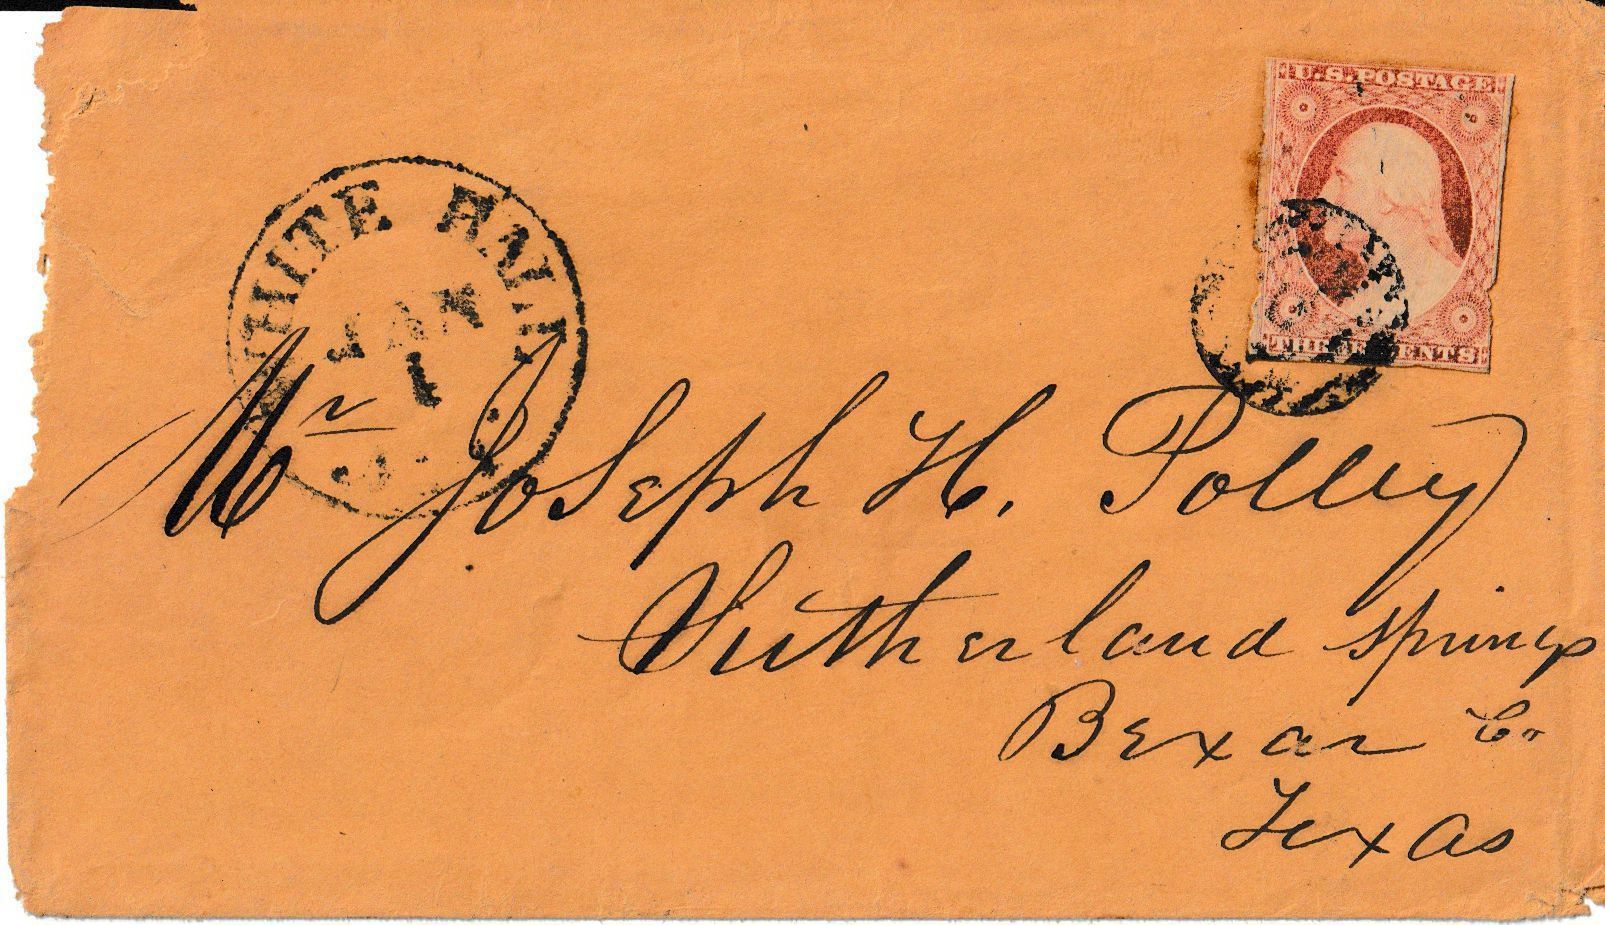 U.S. POSTAGE
THREE CENTS
WHITE HALL
JAN
1
Mr Joseph H. Polley
Sutherland Springs
Bexar Co
Texas